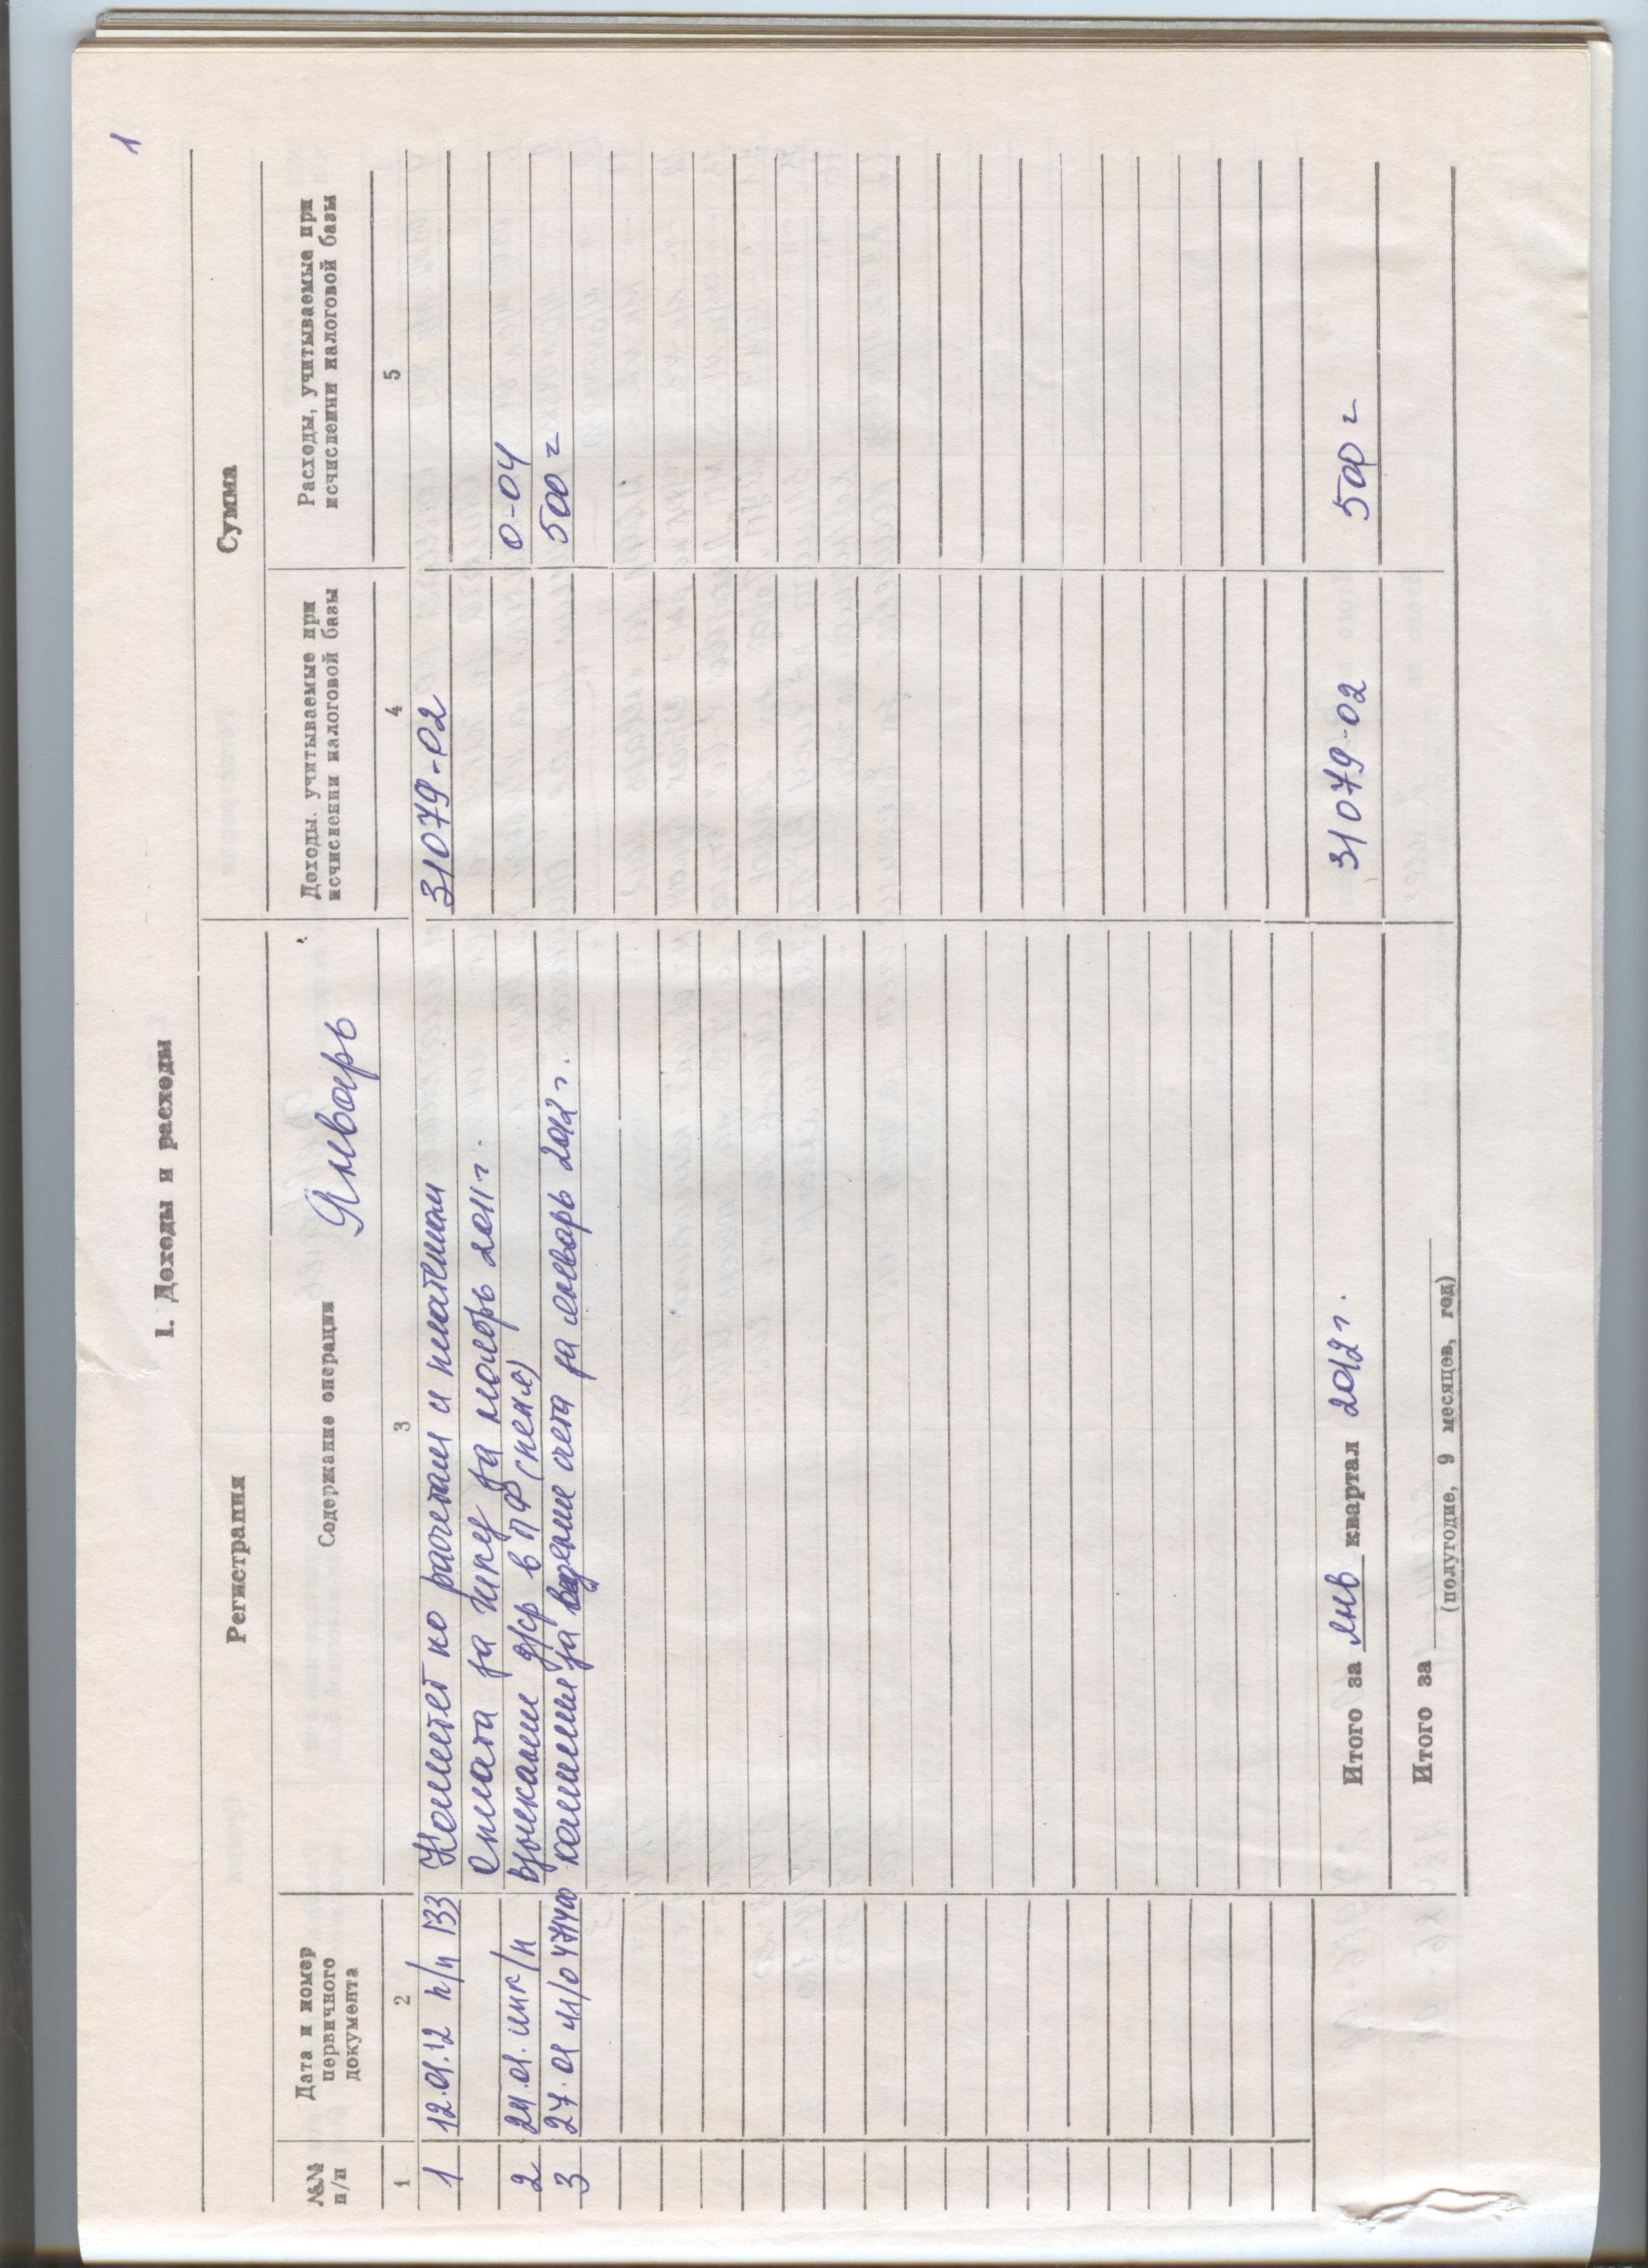 1
I. Доходы и расходы
Регистрация Сумма
№№ п/п Дата и номер первичного документа Содержание операции Январь Доходы, учитываемые при исчислении налоговой базы Расходы, учитываемые при исчислении налоговой базы
1 2 3 4 5
1 12.01.12 п/п 133 Комитет по расчетам и платежам 31079-02
оплата за за ноябрь 2011 г.
2 24.01. взыскание д/ср в ПФ (пеня) 0-04
3 27.01 м/о 471400 комиссия за ведение счета за январь 2012 г. 500 =
Итого за янв квартал 2012 г. 31079-02 500 =
Итого за
(полугодие, 9 месяцев, год)